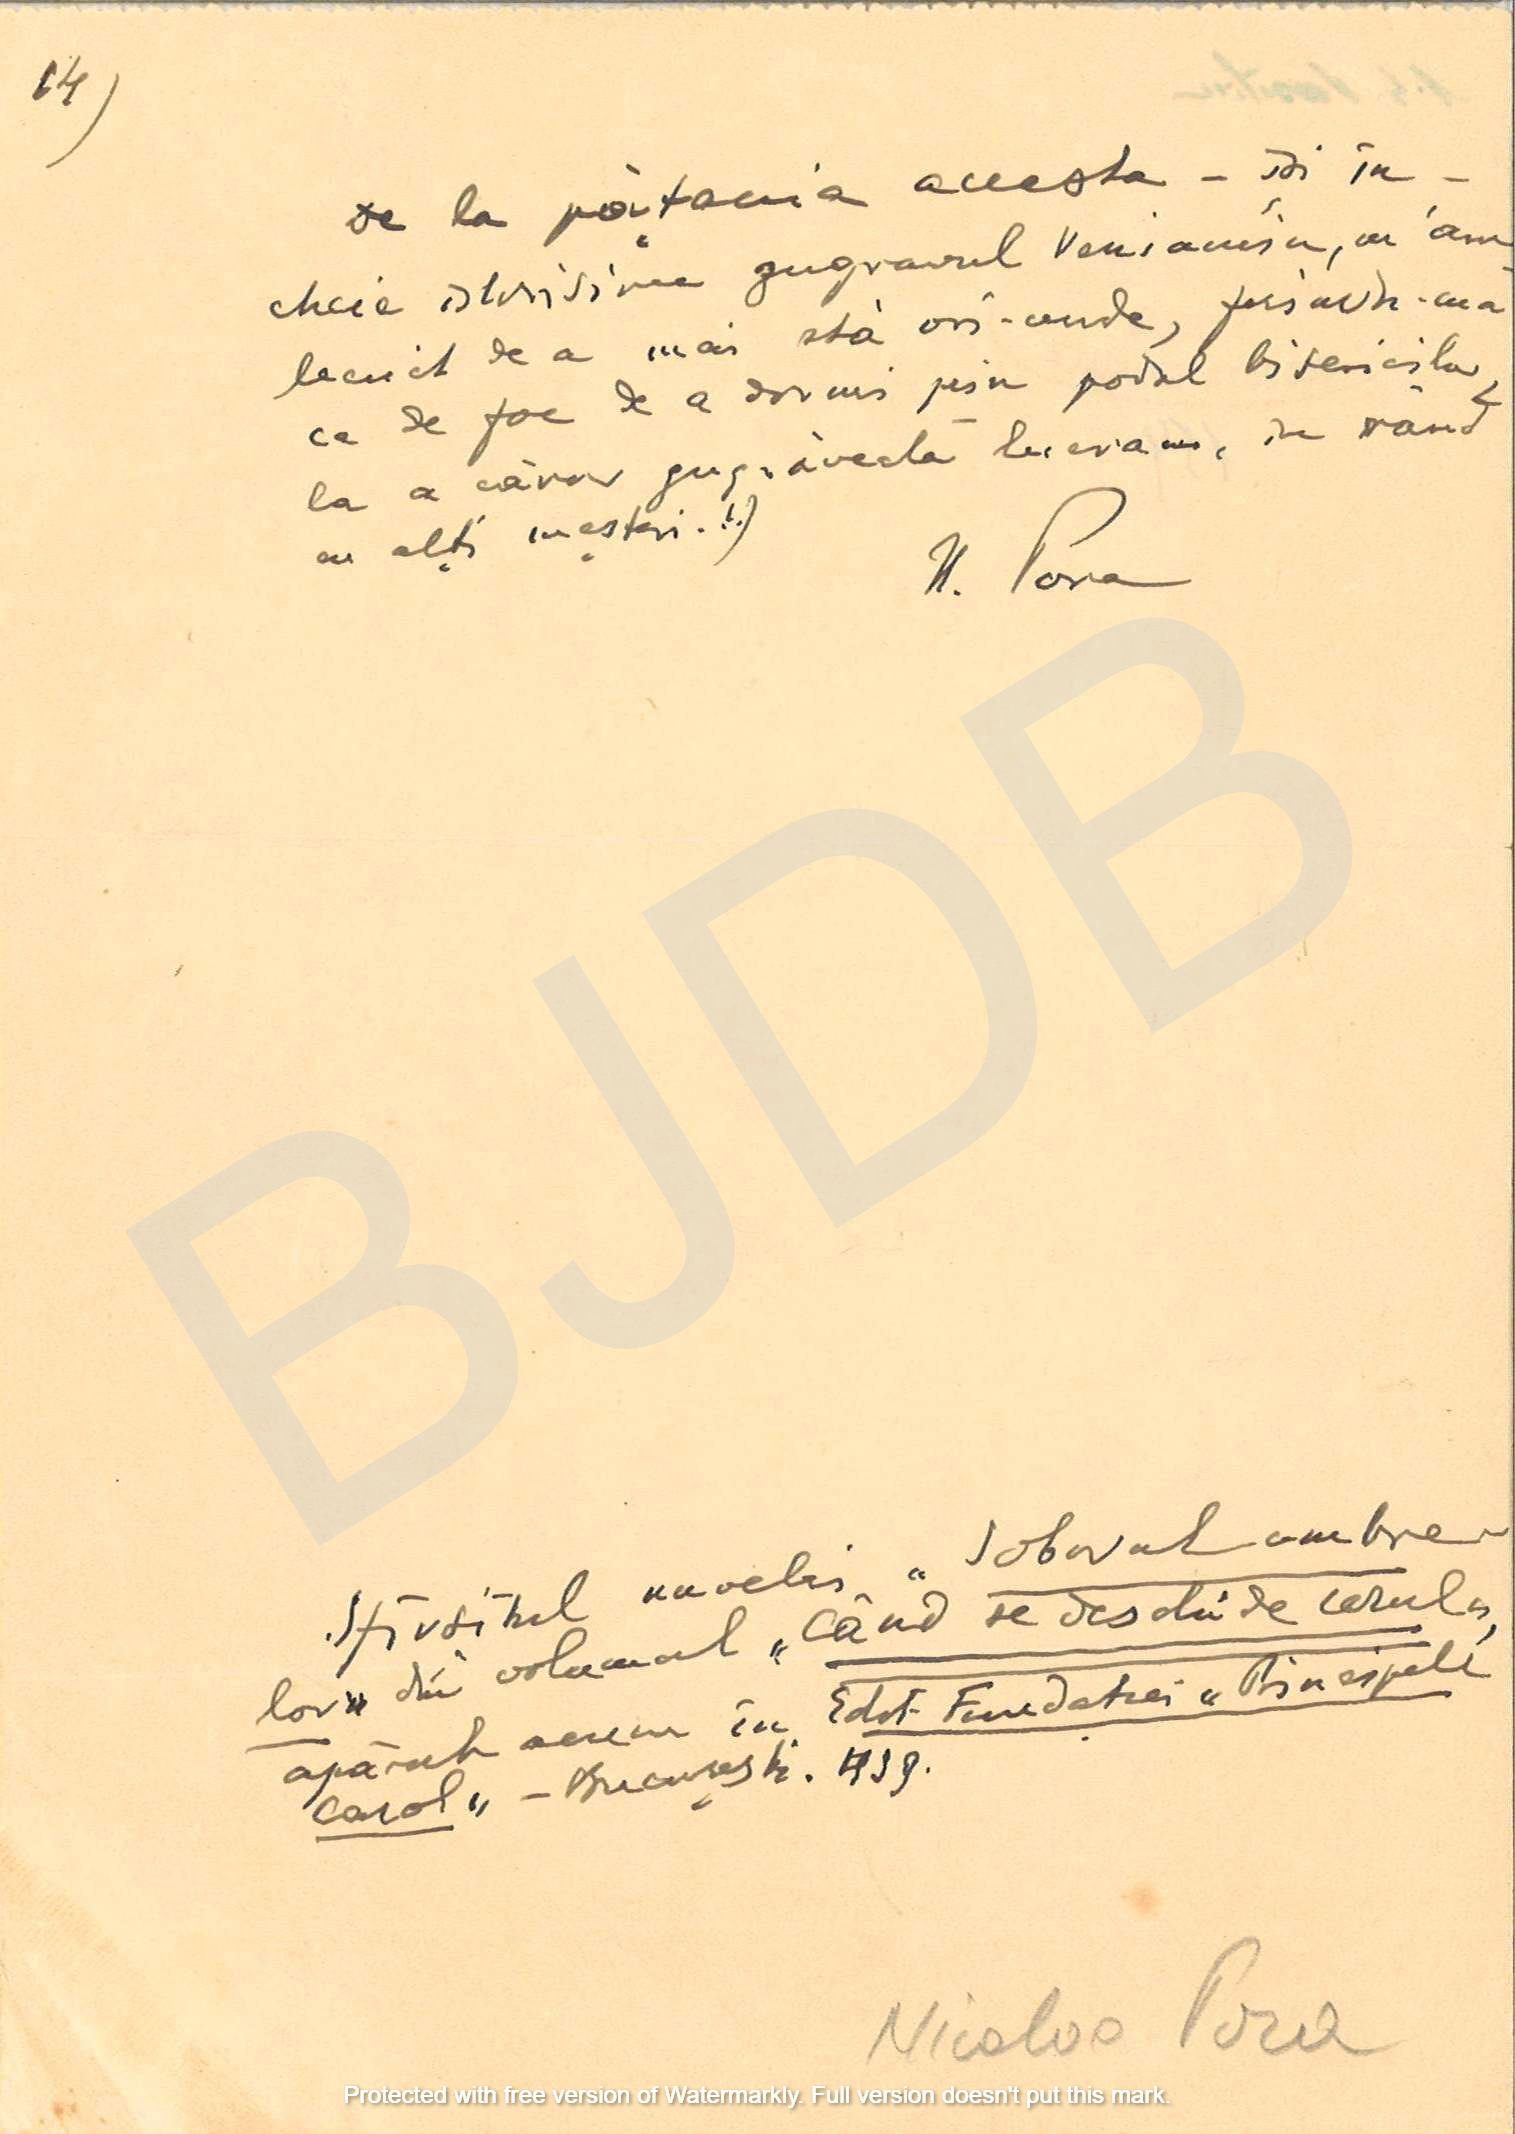 14)
De la pățania aceasta – își în-
cheie istorisirea zugravul Veniamin, m'am
lecuit de a mai sta ori-unde, ferindu-mă
ca de foc de a dormi prin podul bisericilor,
la a căror zugrăveală lucram, în rând
cu alți meșteri.!.)
N. Pora
Sfârșitul nuvelei „Soborul umbre-
lor" din volumul „Când se deschide cerul",
apărut acum în Edit. Fundației „Principele
Carol" – București. 1939.
Nicolae Pora
BJDB
Protected with free version of Watermarkly. Full version doesn't put this mark.